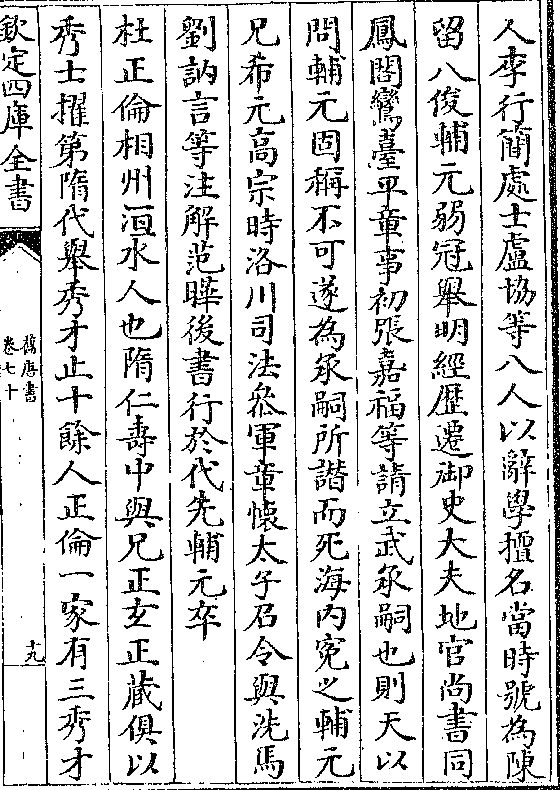 人李行簡處士盧協等八人以辭學擅名當時號為陳
留八俊輔元弱冠舉明經歴遷御史大夫地官尚書同
鳳閣鸞臺平章事初張嘉福等請立武承嗣也則天以
問輔元固稱不可遂為承嗣所譖而死海内寃之輔元
兄希元高宗時洛川司法叅軍章懷太子召令與洗馬
劉訥言等注解范曄後書行於代先輔元卒
杜正倫相州洹水人也隋仁壽中與兄正玄正藏俱以
秀士擢第隋代舉秀才止十餘人正倫一家有三秀才
欽定四庫全書
舊唐書
卷七十
十九